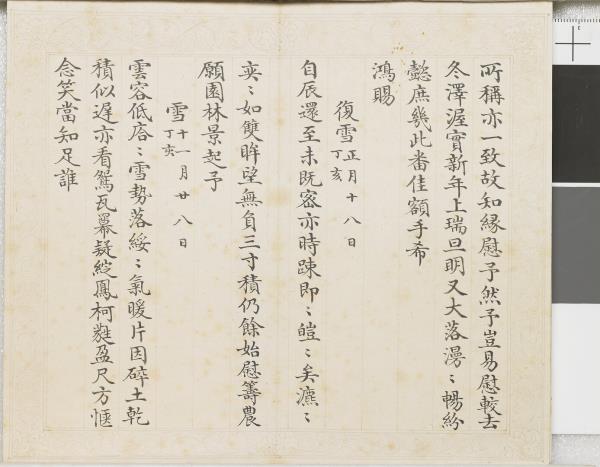 所稱亦一致故知緣慰予然予豈易慰較去
冬澤渥實新年上瑞旦明又大落漫〻暢紛
懿庶幾此番佳額手希
鴻賜
復雪 正月十八日
丁亥
自辰還至未既密亦時疎即〻皚〻矣瀌〻
奕〻如雙眸望無負三寸積仍餘始慰籌農
願園林景起予
雪 十一月廿八日
丁亥
雲容低〻雪勢落綏〻氣暖片因碎土乾
積似遲亦看鴛瓦冪疑綻鳳柯蕤盈尺方愜
念笑當知足誰